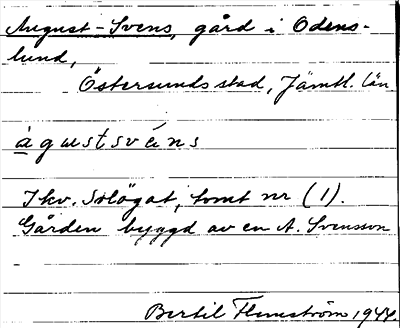 August-Svens, gård i Odens-
lund,
Östersunds stad, Jämtl. län
àgustsvéns
I kv. Solögat, tomt nr (1).
Gården byggd av en A. Svensson
Bertil Flemström 1944.